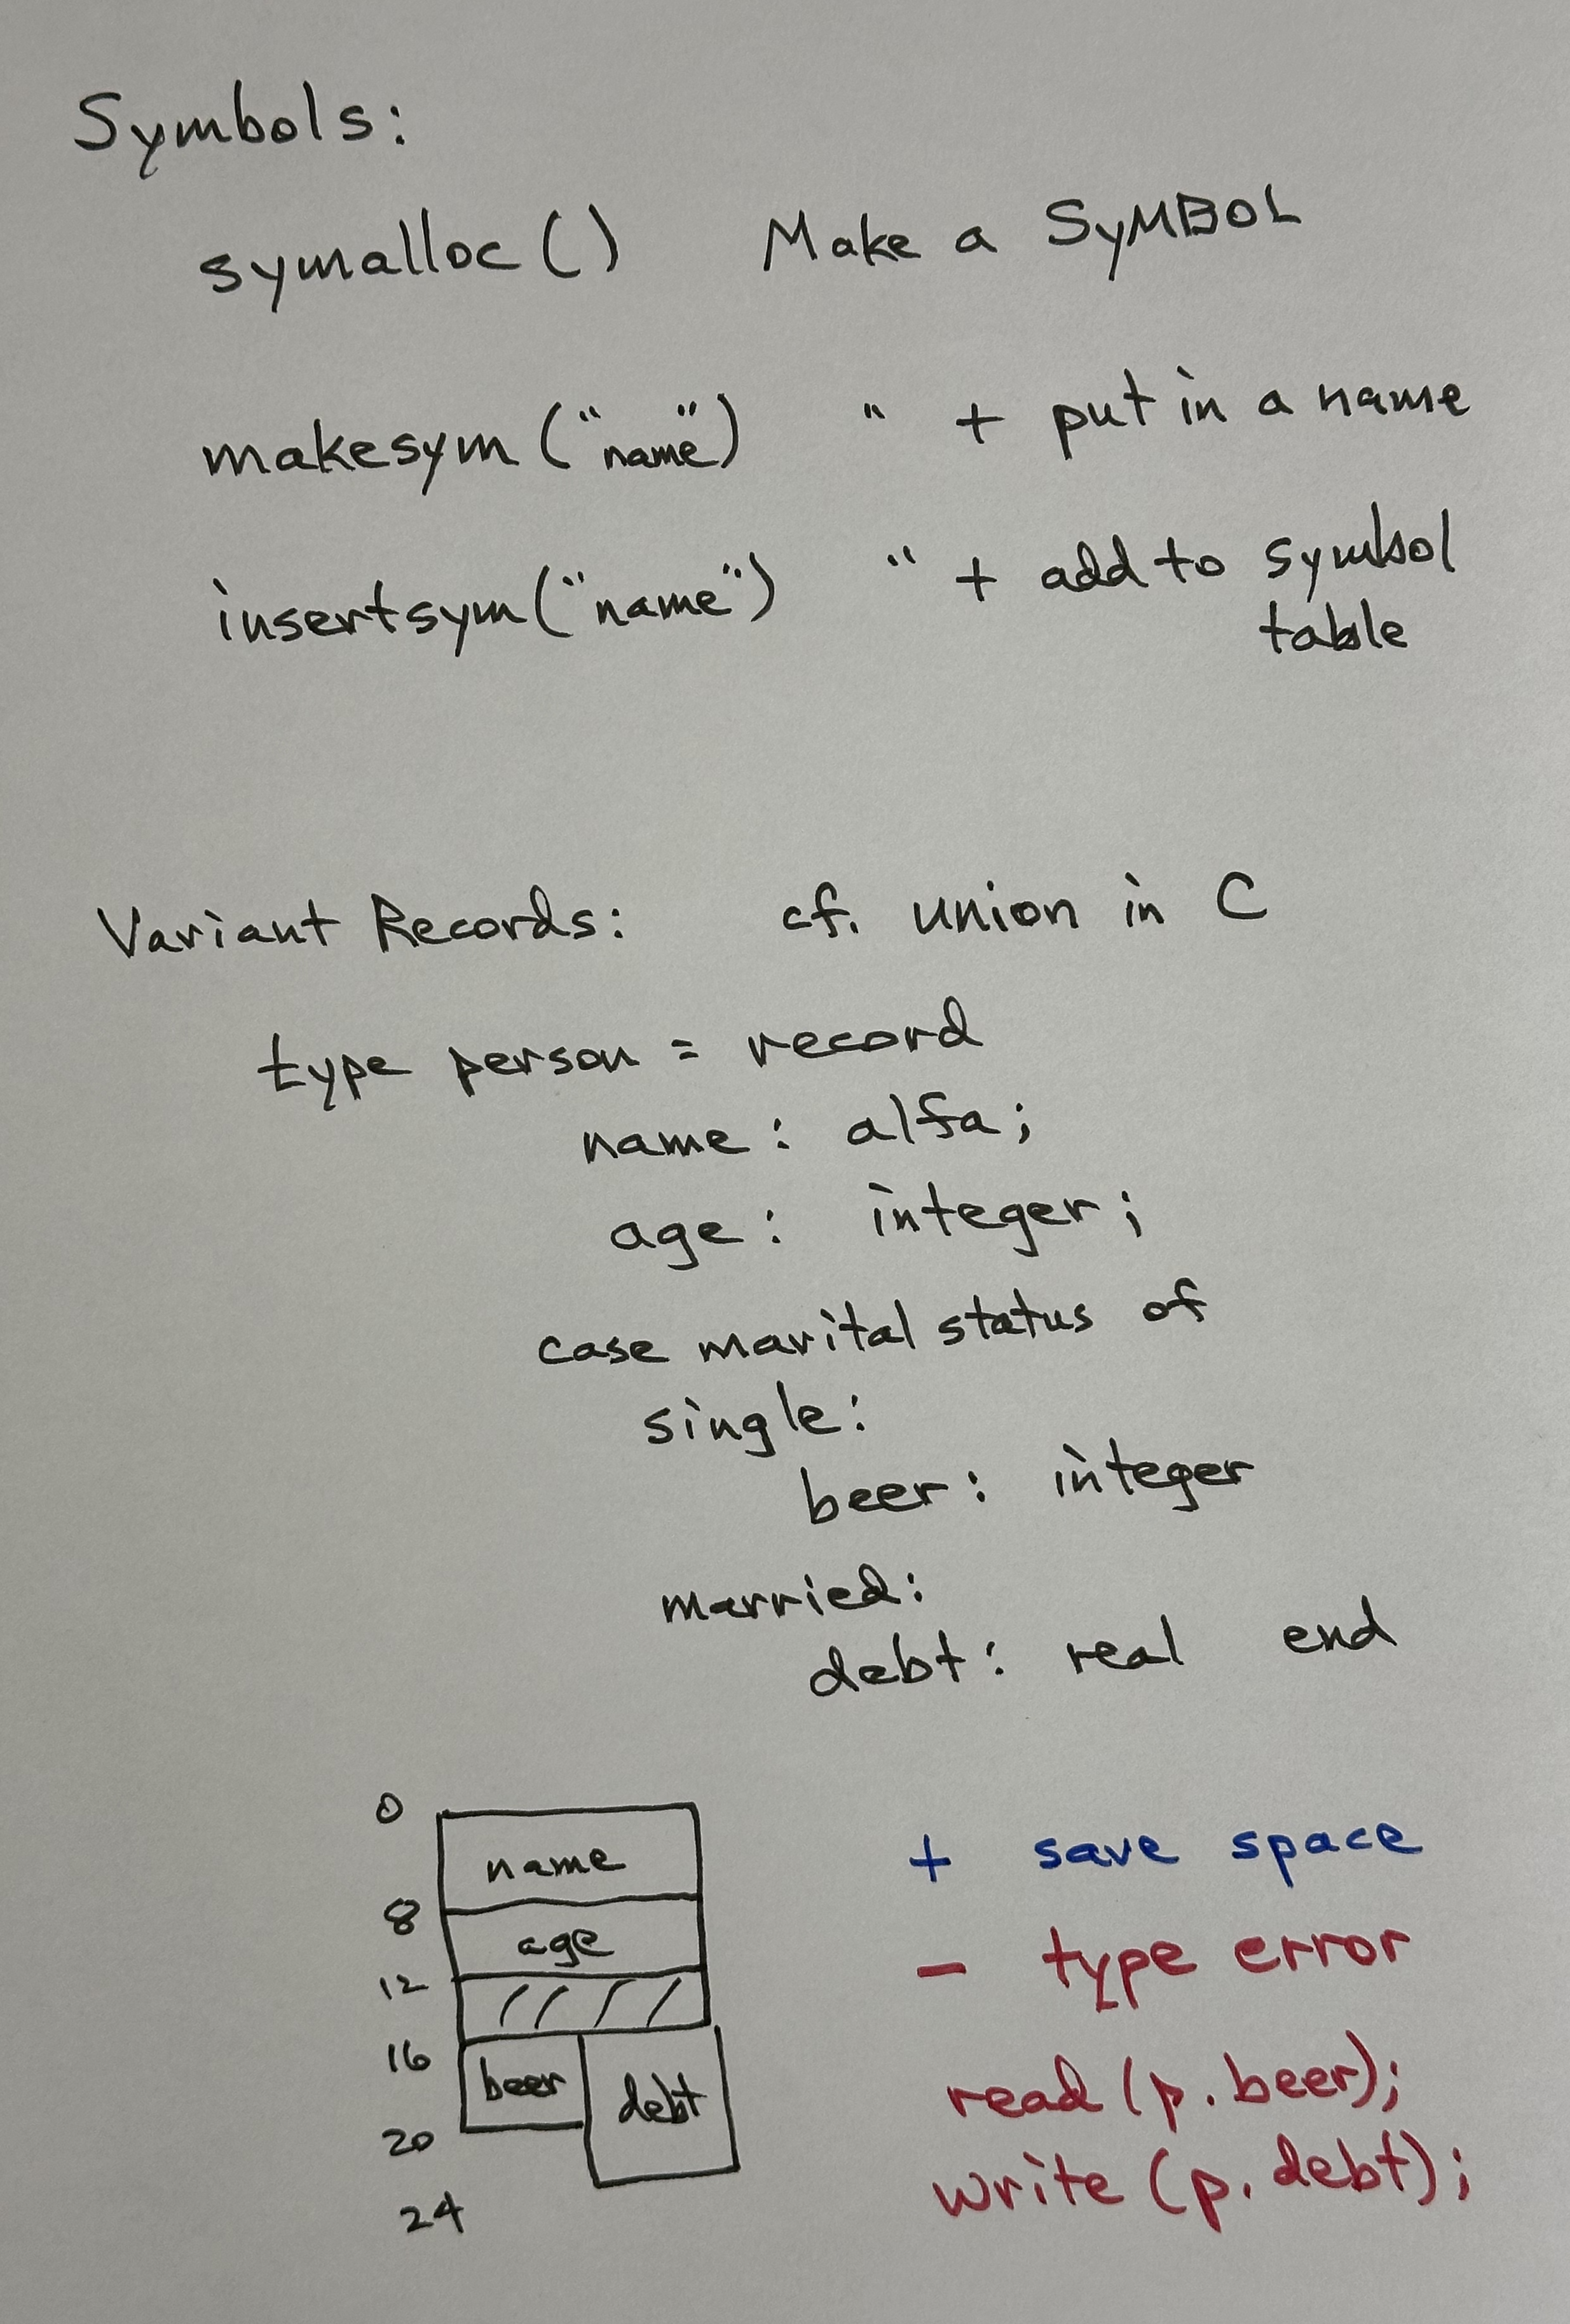 Symbols:
symalloc() Make a SyMBOL
makesym("name") " + put in a name
insertsym("name") " + add to symbol
table
Variant Records: cf. union in C
type person = record
name: alfa;
age: integer;
case marital status of
single:
beer: integer
married:
debt: real end
0
name
8
age
12
16
beer debt
20
24
+ save space
- type error
read (p.beer);
write (p.debt);